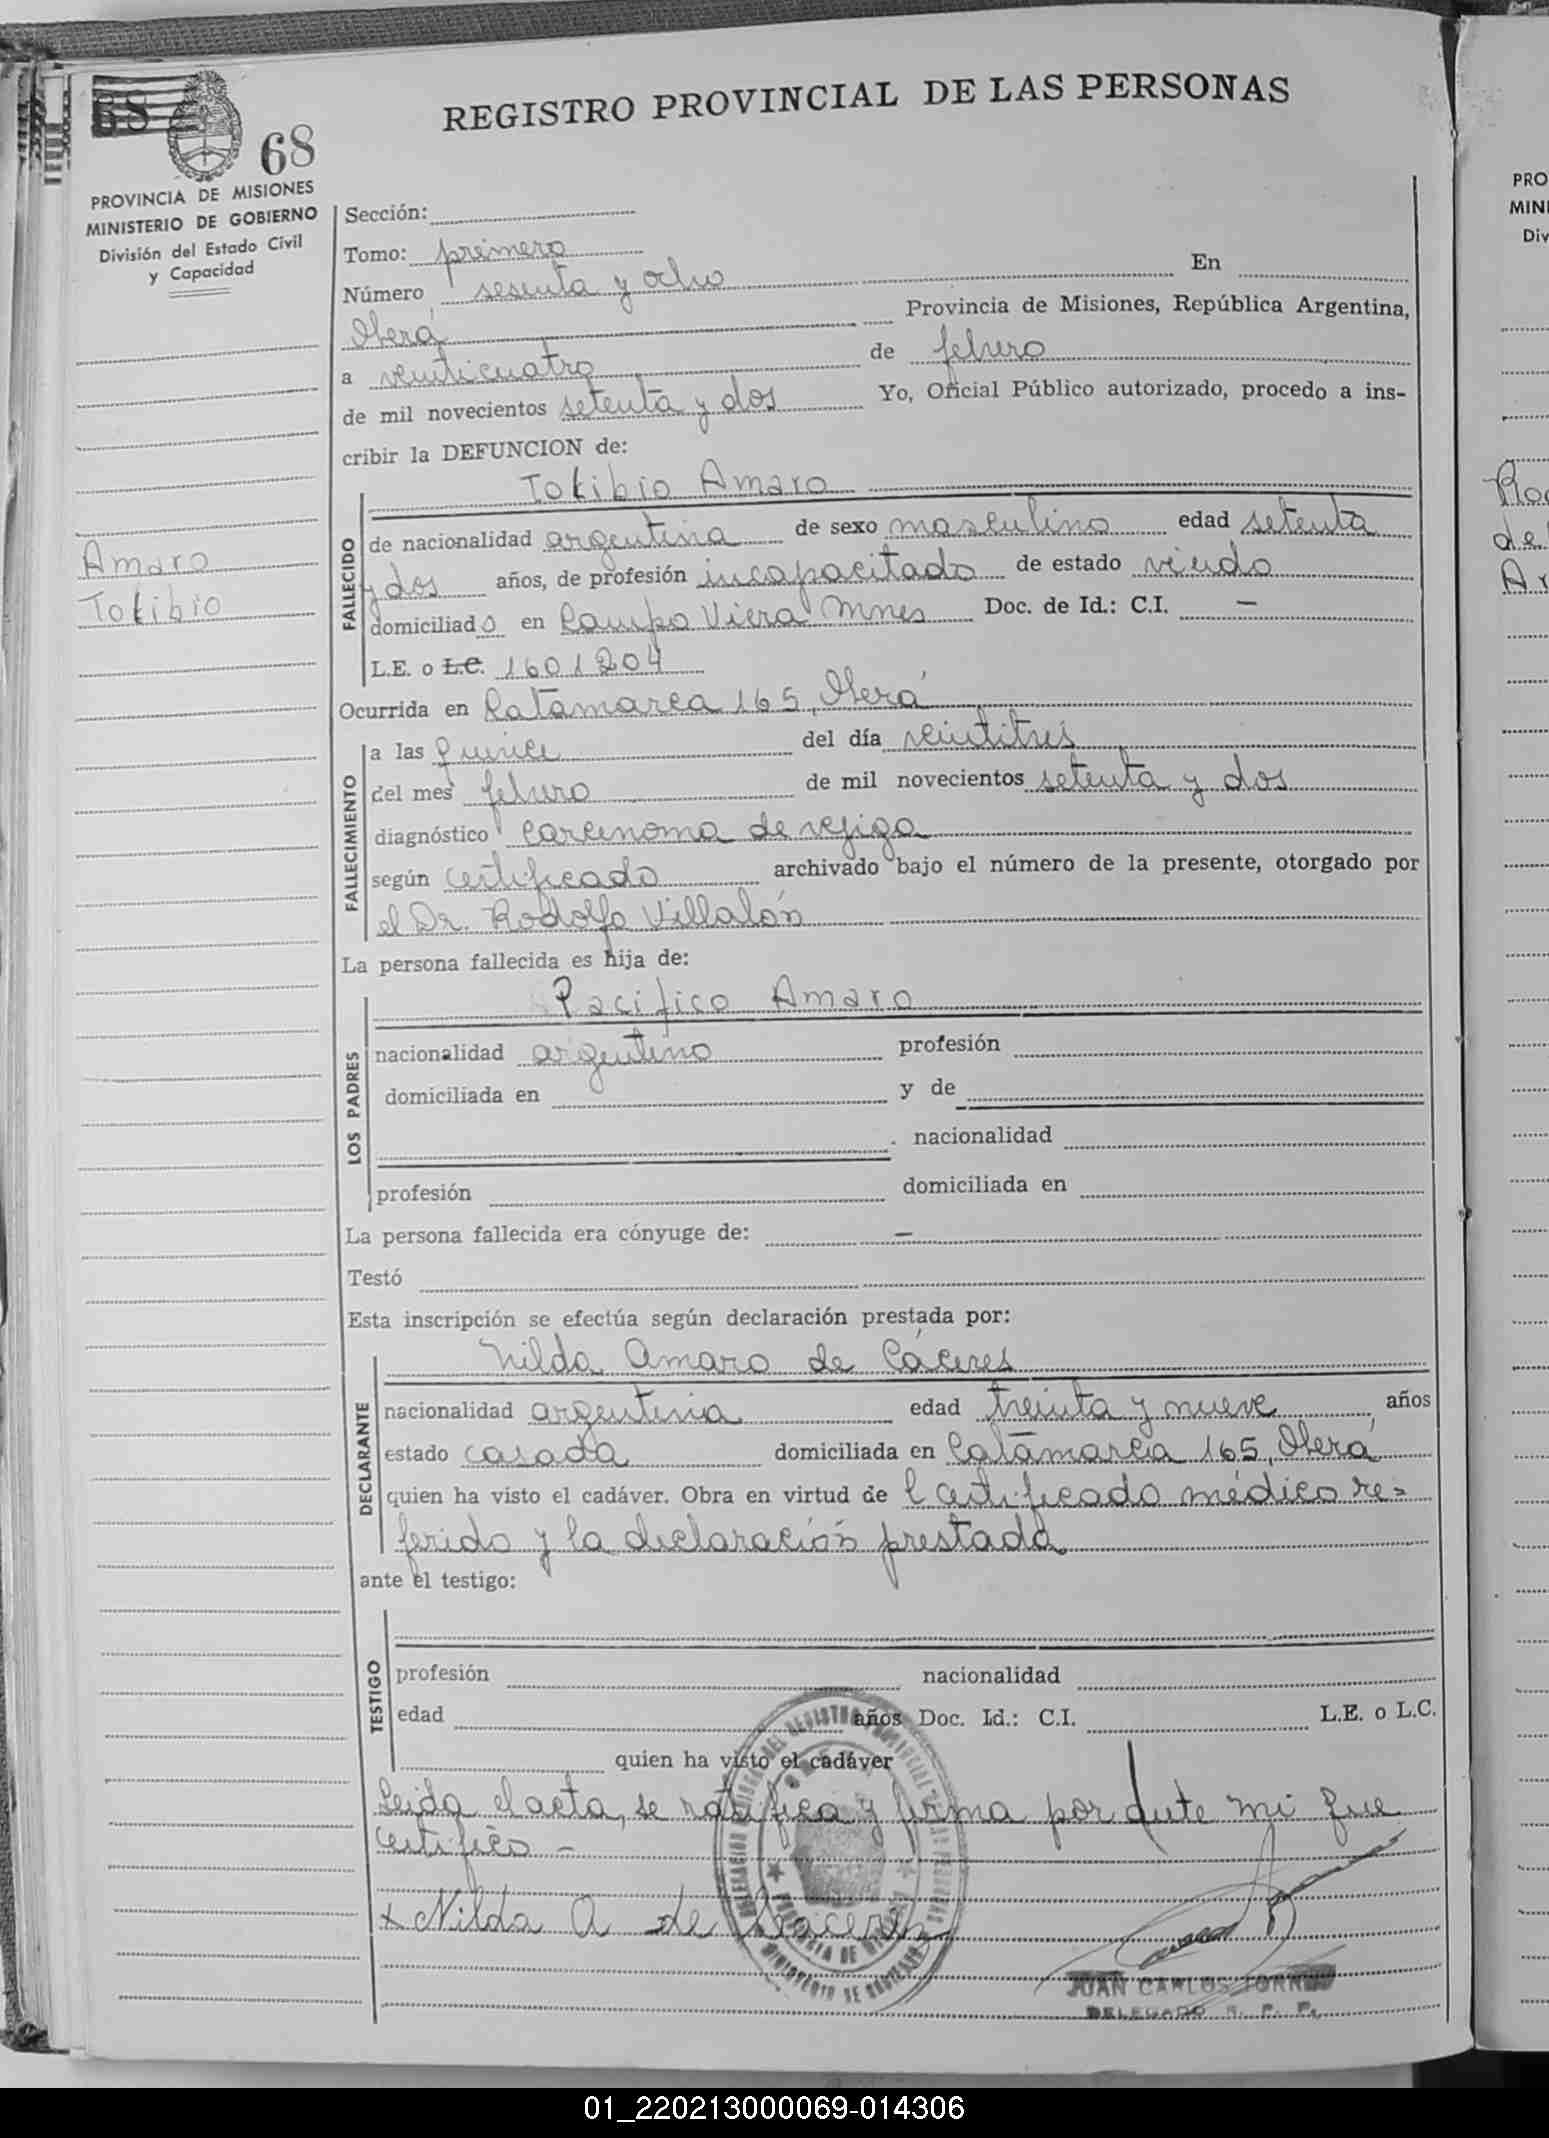 REGISTRO PROVINCIAL DE LAS PERSONAS
68
68
PROVINCIA DE MISIONES
MINISTERIO DE GOBIERNO
División del Estado Civil
y Capacidad
Sección:
Tomo: primero
Número sesenta y ocho En
Oberá Provincia de Misiones, República Argentina,
a veinticuatro de febrero
de mil novecientos setenta y dos Yo, Oficial Público autorizado, procedo a ins-
cribir la DEFUNCION de:
Toribio Amaro
Amaro
Toribio
FALLECIDO
de nacionalidad argentina de sexo masculino edad setenta
y dos años, de profesión incapacitado de estado viudo
domiciliado en Campo Viera Mnes Doc. de Id.: C.I. —
L.E. o L.C. 1601204
Ocurrida en Catamarca 165, Oberá
FALLECIMIENTO
a las quince del día veintitrés
del mes febrero de mil novecientos setenta y dos
diagnóstico carcinoma de vejiga
según certificado archivado bajo el número de la presente, otorgado por
el Dr. Rodolfo Villalón
La persona fallecida es hija de:
LOS PADRES
Pacifico Amaro
nacionalidad argentino profesión
domiciliada en y de
nacionalidad
profesión domiciliada en
La persona fallecida era cónyuge de: —
Testó
Esta inscripción se efectúa según declaración prestada por:
DECLARANTE
Nilda Amaro de Cáceres
nacionalidad argentina edad treinta y nueve años
estado casada domiciliada en Catamarca 165, Oberá
quien ha visto el cadáver. Obra en virtud de l certificado médico re=
ferido y la declaración prestada
ante el testigo:
TESTIGO
profesión nacionalidad
edad años Doc. Id.: C.I. L.E. o L.C.
quien ha visto el cadáver
Leida el acta, se ratifica y firma por ante mi que
certifico -
x Nilda A de Caceres
JUAN CARLOS TORRES
DELEGADO R. P. P.
PRO
MINI
Div
de
01_220213000069-014306